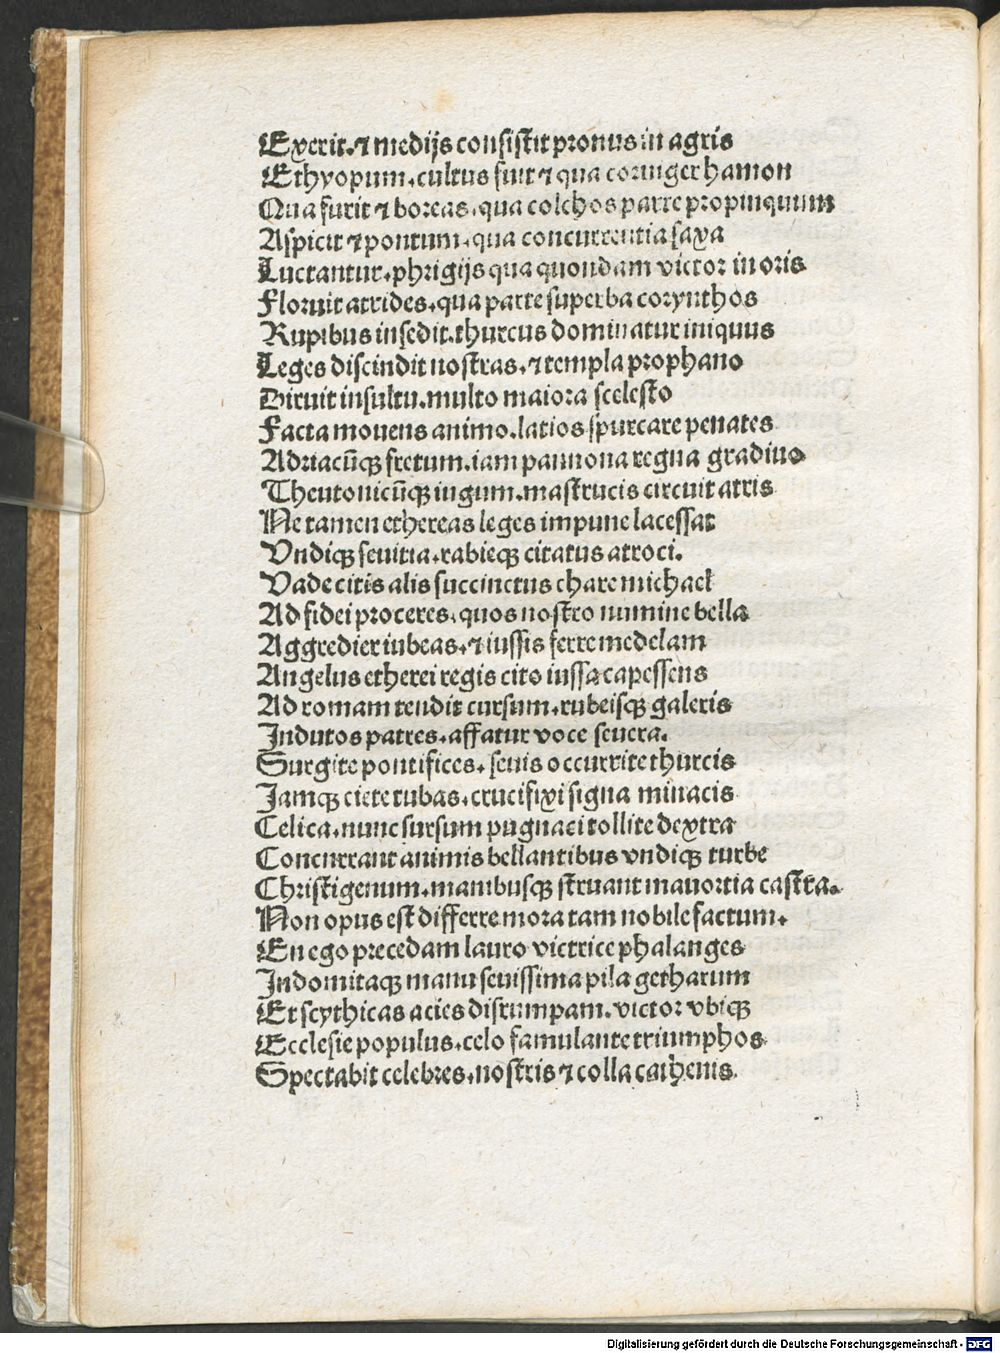 Exerit. ⁊ medijs consistit pronus in agris
Ethyopum. cultus fuit ⁊ qua corniger hamon
Qua furit ⁊ boreas. qua colchos parte propinquum
Aspicit ⁊ pontum. qua concurrentia saxa
Luctantur. phrigijs qua quondam victor in oris
Floruit atrides. qua parte superba corynthos
Rupibus insedit. thurcus dominatur iniquus
Leges discindit nostras. ⁊ templa prophano
Diruit insultu. multo maiora scelesto
Facta mouens animo. latios spurcare penates
Adriacūqꝫ fretum. iam pannona regna gradiuo
Theutonicūqꝫ iugum. mastrucis circuit atris
Ne tamen ethereas leges impune lacessat
Vndiqꝫ seuitia. rabieqꝫ citatus atroci.
Vade citis alis succinctus chare michael
Ad fidei proceres. quos nostro numine bella
Aggredier iubeas. ⁊ iussis ferre medelam
Angelus etherei regis cito iussa capessens
Ad romam tendit cursum. rubeisqꝫ galeris
Indutos patres. affatur voce seuera.
Surgite pontifices. seuis occurrite thurcis
Jamqꝫ ciete tubas. crucifixi signa minacis
Celica. nunc sursum pugnaci tollite dextra
Concurrant animis bellantibus vndiqꝫ turbe
Christigenum. manibusqꝫ struant mauortia castra.
Non opus est differre mora tam nobile factum.
En ego precedam lauro victrice phalanges
Indomitaqꝫ manu seuissima pila getharum
Et scythicas acies disrumpam. victor vbiqꝫ
Ecclesie populus. celo famulante triumphos
Spectabit celebres. nostris ⁊ colla cathenis
Digitalisierung gefördert durch die Deutsche Forschungsgemeinschaft - DFG